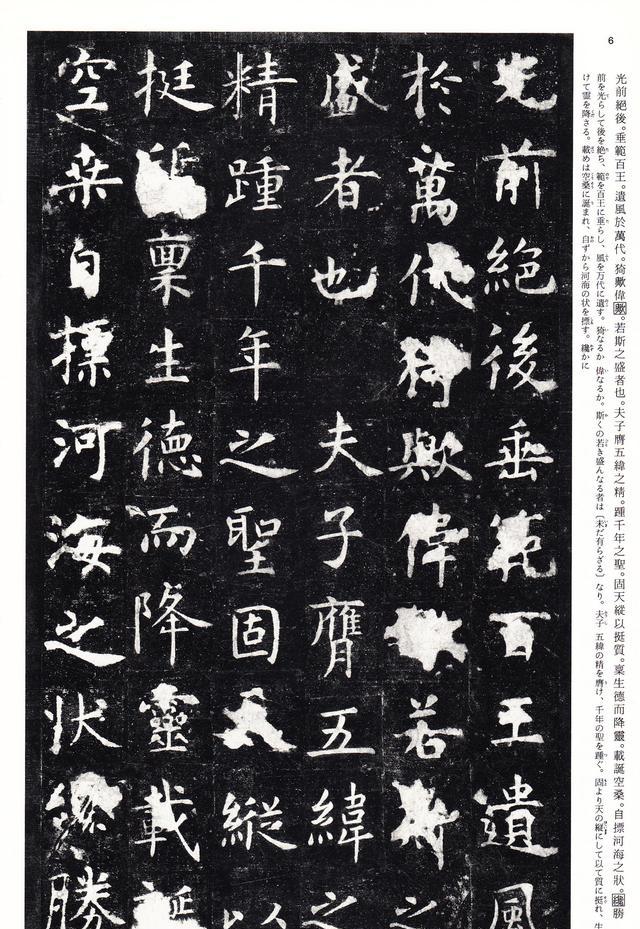 6
光前絕後。垂範百王。遺風於萬代。猗歟偉歟。若斯之盛者也。夫子膺五緯之精。踵千年之聖。固天縱以挺質。稟生德而降靈。載誕空桑。自摽河海之狀。纔勝
前を光らして後を絶ち、範を百王に垂らし、風を万代に遺す。猗なるか 偉なるか。斯くの若き盛んなる者は〔未だ有らざる〕なり。夫子 五緯の精を膺け、千年の聖を踵ぐ。固より天の縦にして以て質に挺れ、生
けて霊を降さる。載めは空桑に誕まれ、自ずから河海の状を摽す。纔かに
光前絕後垂範百王遺風
於萬代猗歟偉 若斯之
盛者也 夫子膺五緯之
精踵千年之聖固天縱以
挺質稟生德而降靈載誕
空桑自摽河海之狀纔勝